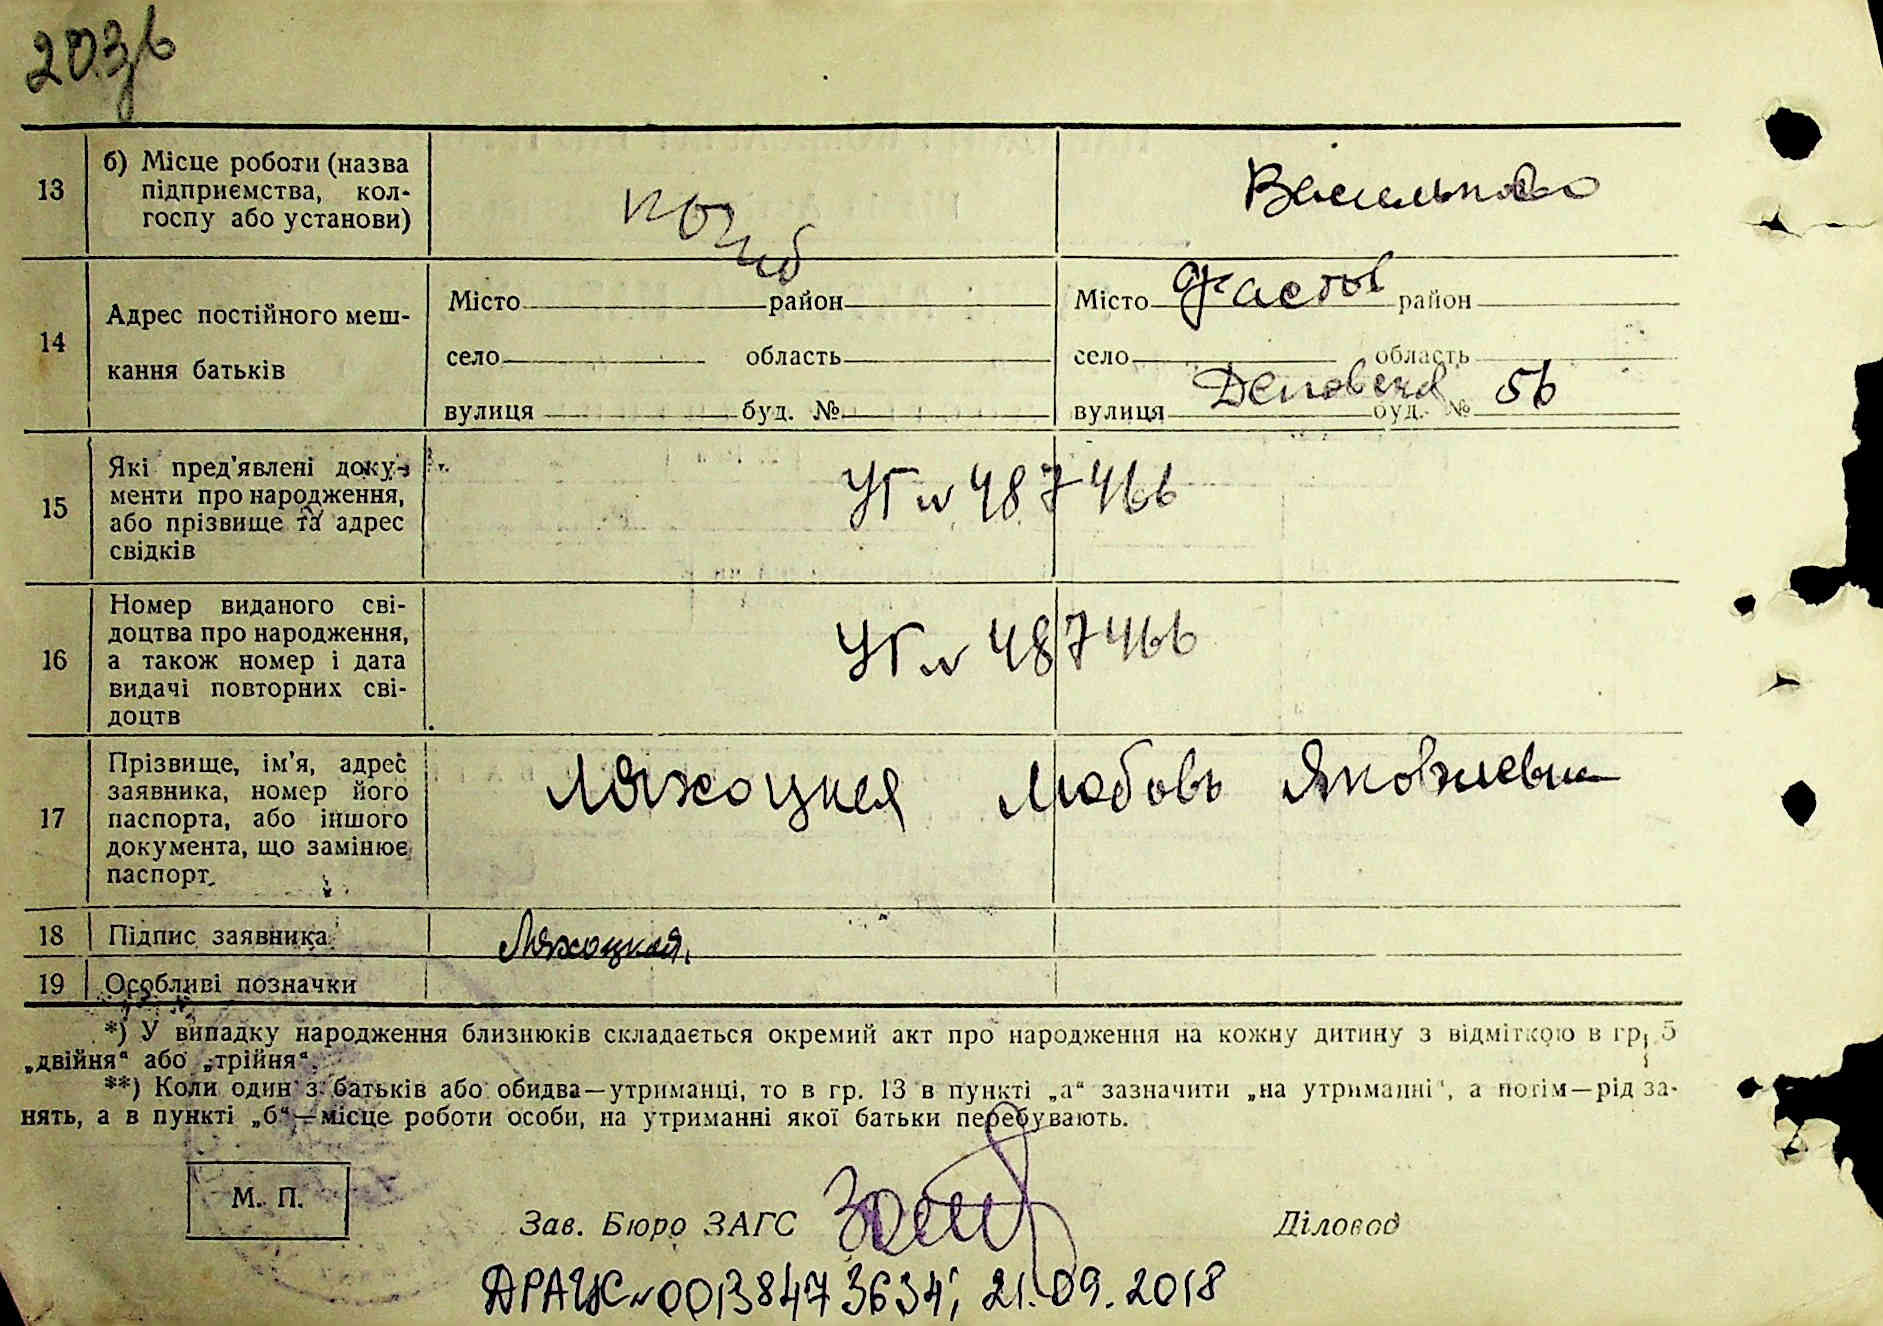 203б
13
б) Місце роботи (назва
підприємства, кол-
госпу або установи)
погиб
14
Адрес постійного меш-
кання батьків
Місто район
село область
вулиця буд. №
Місто Фастов район
село область
вулиця Деповская буд. № 56
15
Які пред'явлені доку-
менти про народження,
або прізвище та адрес
свідків
УГ № 487466
16
Номер виданого сві-
доцтва про народження,
а також номер і дата
видачі повторних сві-
доцтв
УГ № 487466
17
Прізвище, ім'я, адрес
заявника, номер його
паспорта, або іншого
документа, що замінює
паспорт
Ляхоцкая Любовь Яковлевна
18 Підпис заявника
Ляхоцкая.
19 Особливі позначки
*) У випадку народження близнюків складається окремий акт про народження на кожну дитину з відміткою в гр. 5
„двійня“ або „трійня“.
**) Коли один з батьків або обидва—утриманці, то в гр. 13 в пункті „а“ зазначити „на утриманні“, а потім—рід за-
нять, а в пункті „б“—місце роботи особи, на утриманні якої батьки перебувають.
М. П.
Зав. Бюро ЗАГС
Діловод
ДРАЦС № 00138473634; 21.09.2018